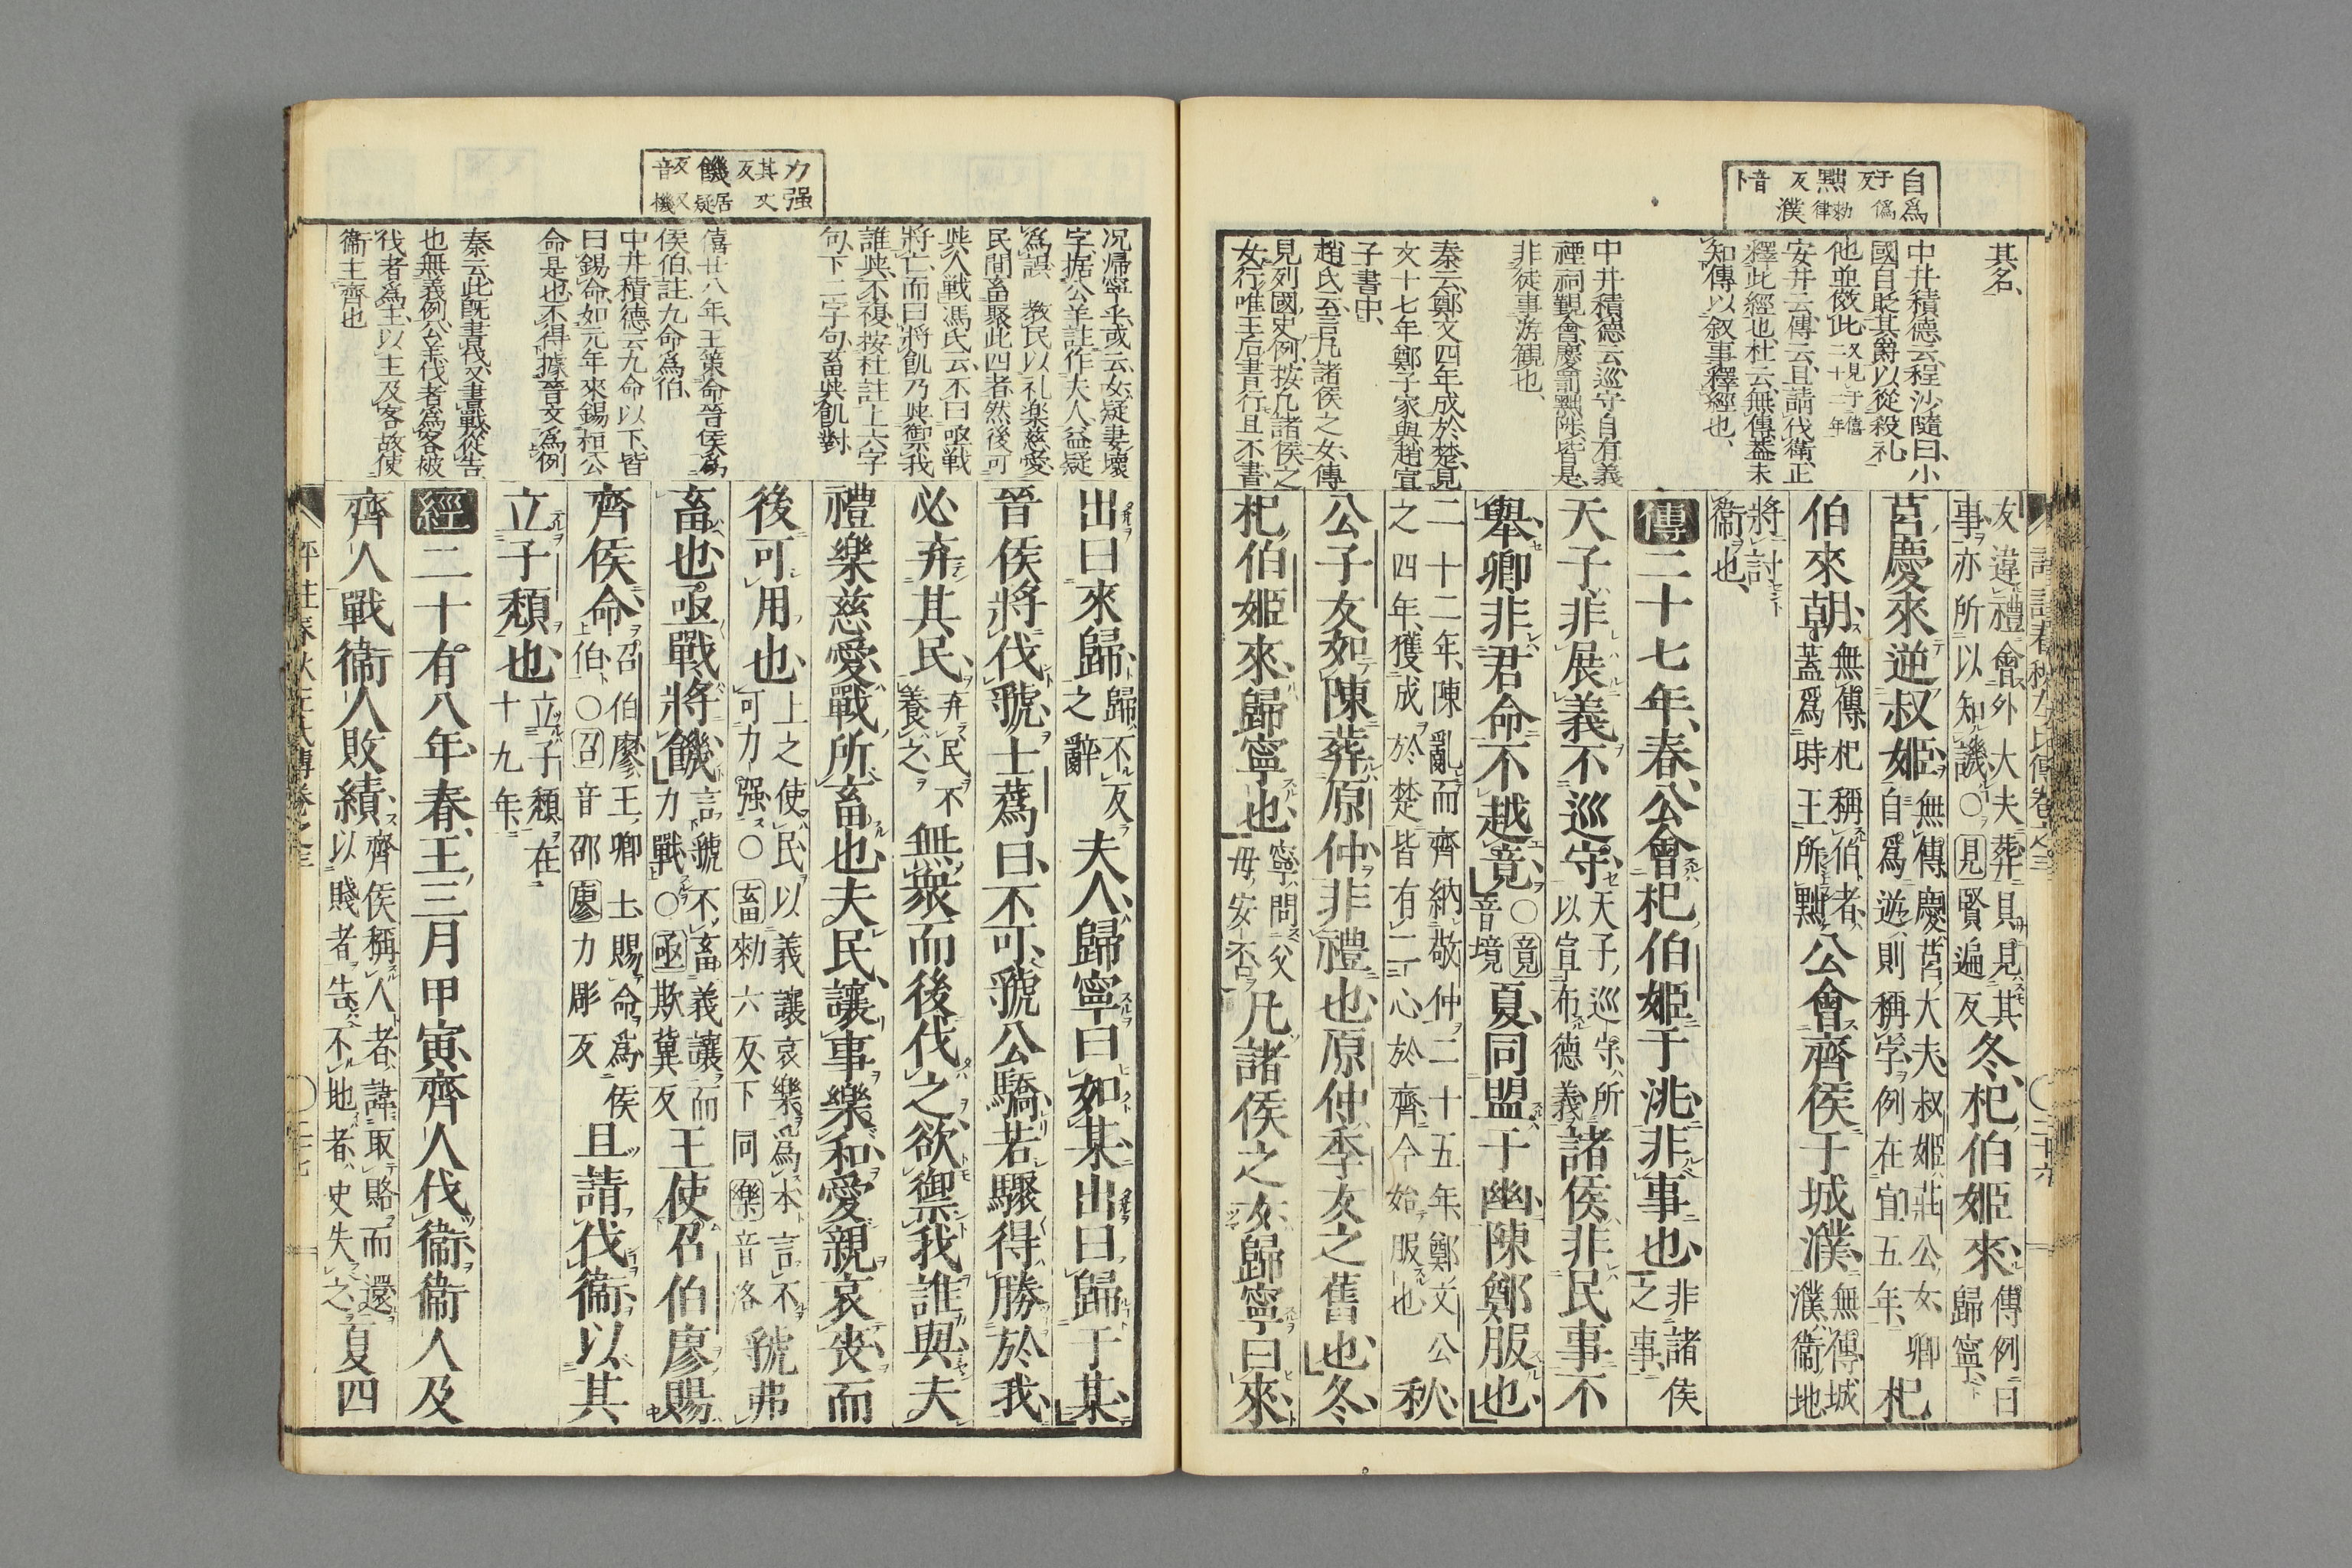 自爲
于僞
反
黜
勅律
反
濮
音卜
其名、
中井積德云、程沙隨曰、小
國自貶其爵、以從殺礼、
他並倣此、又見于僖二十二年
安井云、傳云、且請伐衛、正
釋此經也、杜云、無傳、蓋未
知傳以叙事釋經也、
中井積德云、巡守自有義、
禋祠覲會、慶罰黜陟、皆是、
非徒事游観也、
秦云、鄭文四年成於楚、見
文十七年鄭子家與趙宣
子書中、
趙氏云、言凡諸侯之女、傳
見列國史例、按凡諸侯之
女、行唯王后書、行且不書、
友違禮會外大夫葬、具見其
事、亦所以知譏、○見賢遍反
冬、杞伯姬來、
傳例曰
歸寧、
莒慶來逆叔姬、
無傳、慶、莒大夫、叔姬、莊公女、卿
自爲逆、則稱字、例在宣五年、
杞
伯來朝、
無傳、杞稱伯者、
蓋爲時王所黜、
公會齊侯于城濮、
無傳、城
濮、衛地
將討
衛也、
傳二十七年、春、公會杞伯姬于洮、非事也、
非諸侯
之事、
天子非展義不巡守、
天子巡守、所
以宣布德義、
諸侯非民事不
舉、卿非君命不越竟、
○竟
音境
夏、同盟于幽、陳鄭服也、
二十二年、陳亂而齊納敬仲、二十五年、鄭文公
之四年、獲成於楚、皆有二心於齊、今始服也、
秋、
公子友如陳、葬原仲、非禮也、原仲、季友之舊也、冬、
杞伯姬來、歸寧也、
寧、問父
毋安否、
凡諸侯之女、歸寧曰來、
力强
其丈
反
饑
居疑
反又
音機
况帰寧乎、或云、女疑妻壞
字、据公羊註作夫人、益疑
爲誤、教民以礼楽慈愛、
民間畜聚此四者、然後可
與人戦、馮氏云、不曰亟戦
將亡、而曰將飢、乃與禦我
誰與、不複、按杜註、上六字
句、下二字句、畜與飢對、
僖廿八年、王策命晉侯爲
侯伯、註、九命爲伯、
中井積德云、九命以下、皆
曰錫命、如元年來錫桓公
命是也、不得據晉文爲例
秦云、此旣書伐、又書戰、從告
也、無義例、公羊伐者爲客、被
伐者爲主、以主及客、故使
衛主齊也
出曰來歸、
歸、不反
之辭
夫人、歸寧曰如某、出曰歸于某、
晉侯將伐虢、士蒍曰、不可、虢公驕、若驟得勝於我、
必弃其民、
弃民不
養之、
無衆而後伐之、欲禦我誰與、夫
禮樂慈愛、戰所畜也、夫民、讓事樂和、愛親哀喪、而
後可用也、
上之使民、以義讓哀樂爲本、言不
可力强、○畜勑六反、下同、樂音洛
虢弗
畜也、亟戰、將饑、
言虢不畜義讓而
力戰○亟欺冀反
王使召伯廖賜
齊侯命、
召伯廖、王卿士、賜命爲侯
伯、○召音邵廖力彫反
且請伐衛、以其
立子頽也、
立子頽在
十九年、
經二十有八年、春、王三月甲寅、齊人伐衛、衛人及
齊人戰、衛人敗績、
齊侯稱人者、諱取賂而還、
以賤者告、不地者、史失之、
夏四